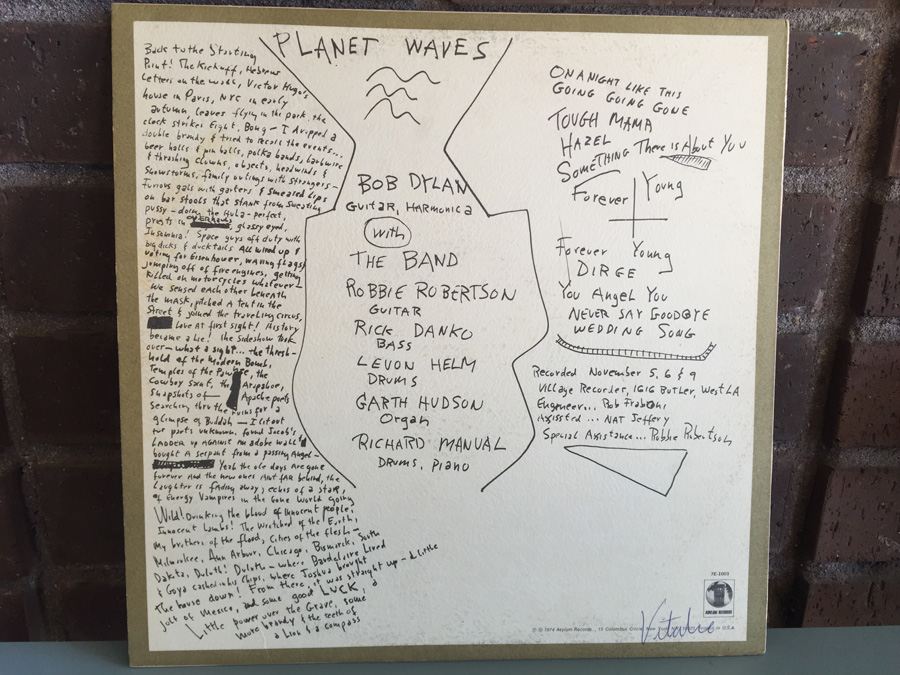 PLANET WAVES
Back to the Starting
Point! The Kickoff, Hebrew
Letters on the wall, Victor Hugo's
house in Paris, NYC in early
autumn, leaves flying in the park, the
clock strikes Eight, Bong - I dropped a
double brandy & tried to recall the events...
beer halls & pin balls, polka bands, barbwire
& thrashing clowns, objects, headwinds &
snowstorms, family outings with strangers -
Furious gals with garters & smeared lips
on bar stools that stank from sweating
pussy - doing the Hula - perfect,
priests in overhauls, glassy eyed,
Insomnia! Space guys off duty with
big dicks & ducktails All wired up &
voting for Eisenhower, waving flags &
jumping off of fire engines, getting
killed on motorcycles whatever -
we sensed each other beneath
the mask, pitched a tent in the
Street & joined the traveling circus,
Love at first sight! History
became a Lie! the sideshow took
over - what a sight... the thresh-
hold of the Modern Bomb,
Temples of the Pawnee, the
Cowboy saint, the Arapahoe,
snapshots of Apache poets
searching thru the ruins for a
glimpse of Buddah - I lit out
for parts unknown, found Jacob's
Ladder up against an adobe wall &
bought a serpent from a passing Angel -
Yeah the ole days Are gone
forever And the new ones Aint fAR behind, the
Laughter is fading away, echos of a star,
of Energy Vampires in the Gone World going
Wild! Drinking the blood of innocent people,
Innocent Lambs! The Wretched of the Earth,
My brothers of the flood, Cities of the flesh -
Milwaukee, Ann Arbour, Chicago, Bismarck, South
Dakota, Duluth! Duluth - where Baudelaire Lived
& Goya cashed in his Chips, where Joshua brought
the house down! From there, it was straight up - a little
jolt of Mexico, and some good LUCK, a
Little power over the Grave, some
more brandy & the teeth of
a Lion & a compass
BOB DYLAN
Guitar, Harmonica
with
THE BAND
ROBBIE ROBERTSON
GUITAR
RICK DANKO
BASS
LEVON HELM
DRUMS
GARTH HUDSON
Organ
RICHARD MANUAL
DRUMS, PIANO
ON A NIGHT LIKE THIS
GOING GOING GONE
TOUGH MAMA
HAZEL
SOMETHING There is About You
Forever Young
Forever Young
DIRGE
You Angel You
NEVER SAY GOODBYE
WEDDING SONG
Recorded November 5, 6 & 9
Village Recorder, 1616 Butler, West LA
Engineer... Rob Fraboni
Assisted... NAT Jeffery
Special Assistance... Robbie Robertson
7E-1003
ASYLUM RECORDS
© ℗ 1974 Asylum Records... 15 Columbus Circle, New York U.S.A.